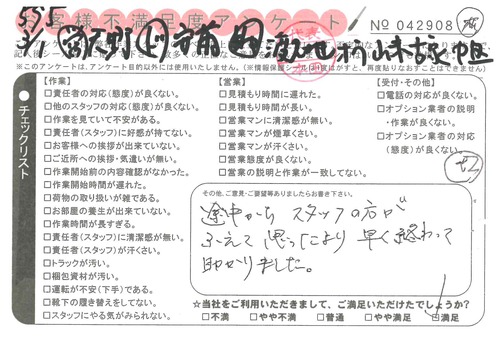 お客様不満足度アンケート
NO 042908
※このアンケートは、アンケート目的以外には一切使用いたしません。
チェックリスト
【作業】
□責任者の対応(態度)が良くない。
□他のスタッフの対応(態度)が良くない。
□作業を見ていて不安がある。
□責任者(スタッフ)に好感が持てない。
□お客様への挨拶が出来ていない。
□ご近所への挨拶・気遣いが無い。
□作業開始前の内容確認がなかった。
□作業開始時間が遅れた。
□荷物の取り扱いが雑である。
□お部屋の養生が出来ていない。
□作業時間が長すぎる。
□責任者(スタッフ)に清潔感が無い。
□責任者(スタッフ)が汗くさい。
□トラックが汚い。
□梱包資材が汚い。
□運転が不安(下手)である。
□靴下の履き替えをしてない。
□スタッフにやる気がみられない。
【営業】
□見積もり時間に遅れた。
□見積もり時間が長い。
□営業マンに清潔感が無い。
□営業マンが煙草くさい。
□営業マンが汗くさい。
□営業態度が良くない。
□営業の説明と作業が一致してない。
【受付・その他】
□電話の対応が良くない。
□オプション業者の説明
・作業が良くない。
□オプション業者の対応
(態度)が良くない。
その他、ご意見・ご要望等ありましたらお書き下さい。
途中から スタッフの方が
ふえて 思ったより 早く終わって
助かりました。
☆当社をご利用いただきまして、ご満足いただけたでしょうか?
□不満 □やや不満 □普通 □やや満足 □満足